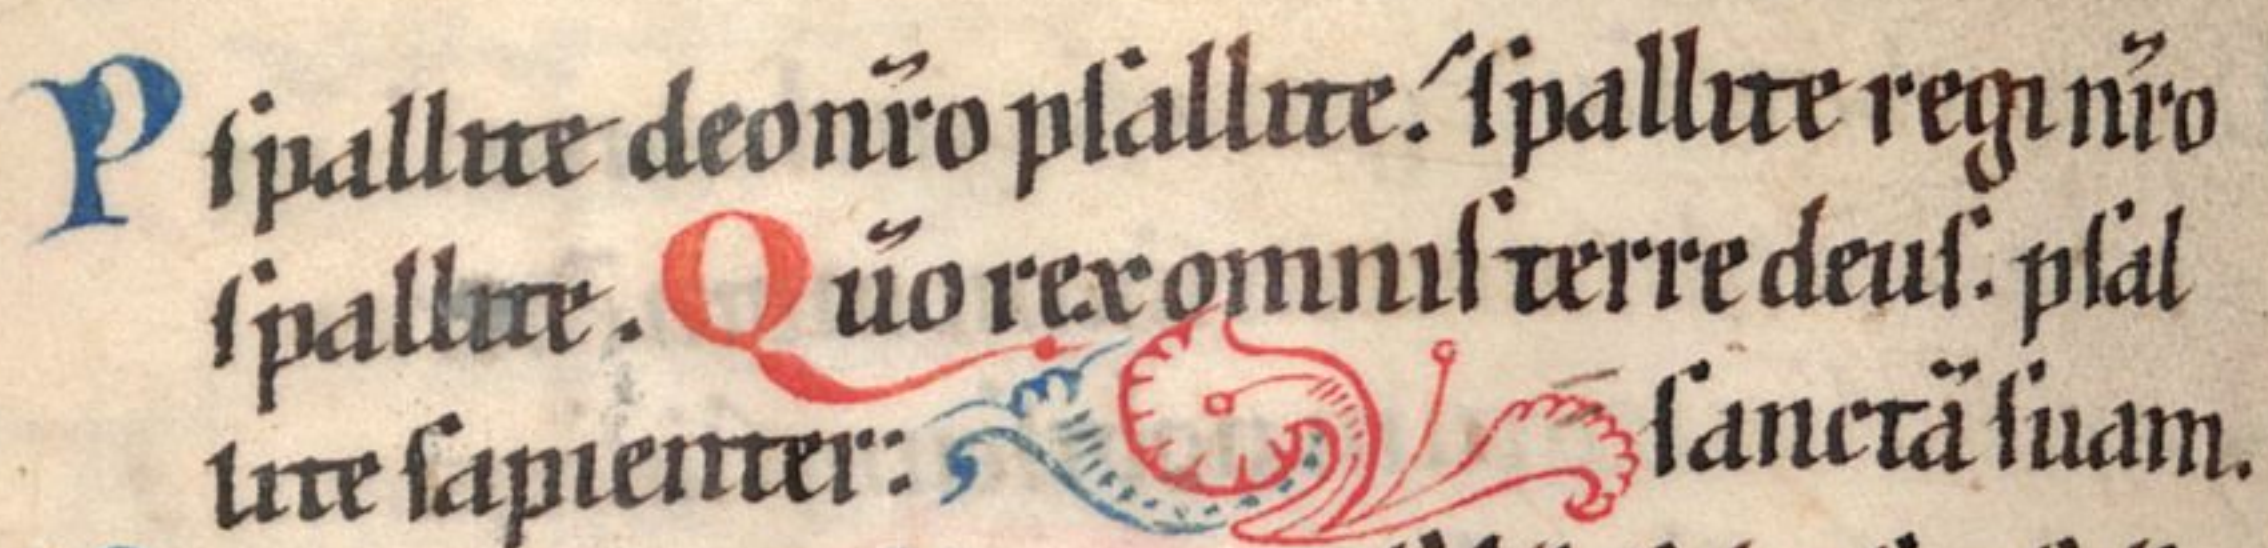 P ſpallite deo nr̃o pſallite: ſpallite regi nr̃o
ſpallite. Qũo rex omniſ terre deuſ. pſal
lite ſapienter: ſanctã ſuam.